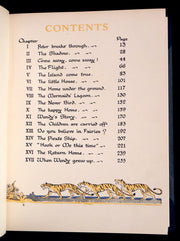 CONTENTS
Chapter Page
I Peter breaks through. 13
II The Shadow. 23
III Come away, come away! 44
IV The Flight. 57
V The Island come true. 83
VI The little House. 101
VII The Home under the ground. 117
VIII The Mermaids' Lagoon. 130
IX The Never Bird. 148
X The happy Home. 155
XI Wendy's Story. 167
XII The Children are carried off. 183
XIII Do you believe in Fairies? 192
XIV The Pirate Ship. 207
XV "Hook or Me this time" 220
XVI The Return Home. 239
XVII When Wendy grew up. 255